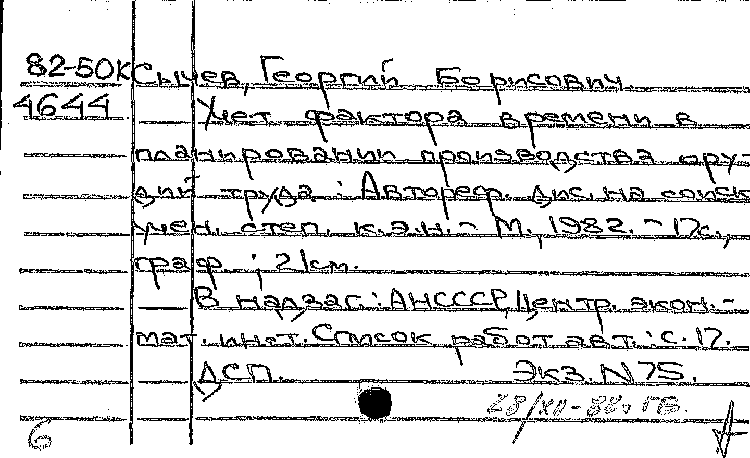 82-50К Сычев, Георгий Борисович
4644 Учет фактора времени в
планировании производства ору-
дий труда : Автореф. дис. на соиск
учен. степ. к.э.н. - М., 1982. - 17с.,
граф ; 21см.
В надзаг.: АНСССР, Центр. экон.-
мат. инст. Список работ авт.: с. 17.
ДСП. Экз. N 75.
6